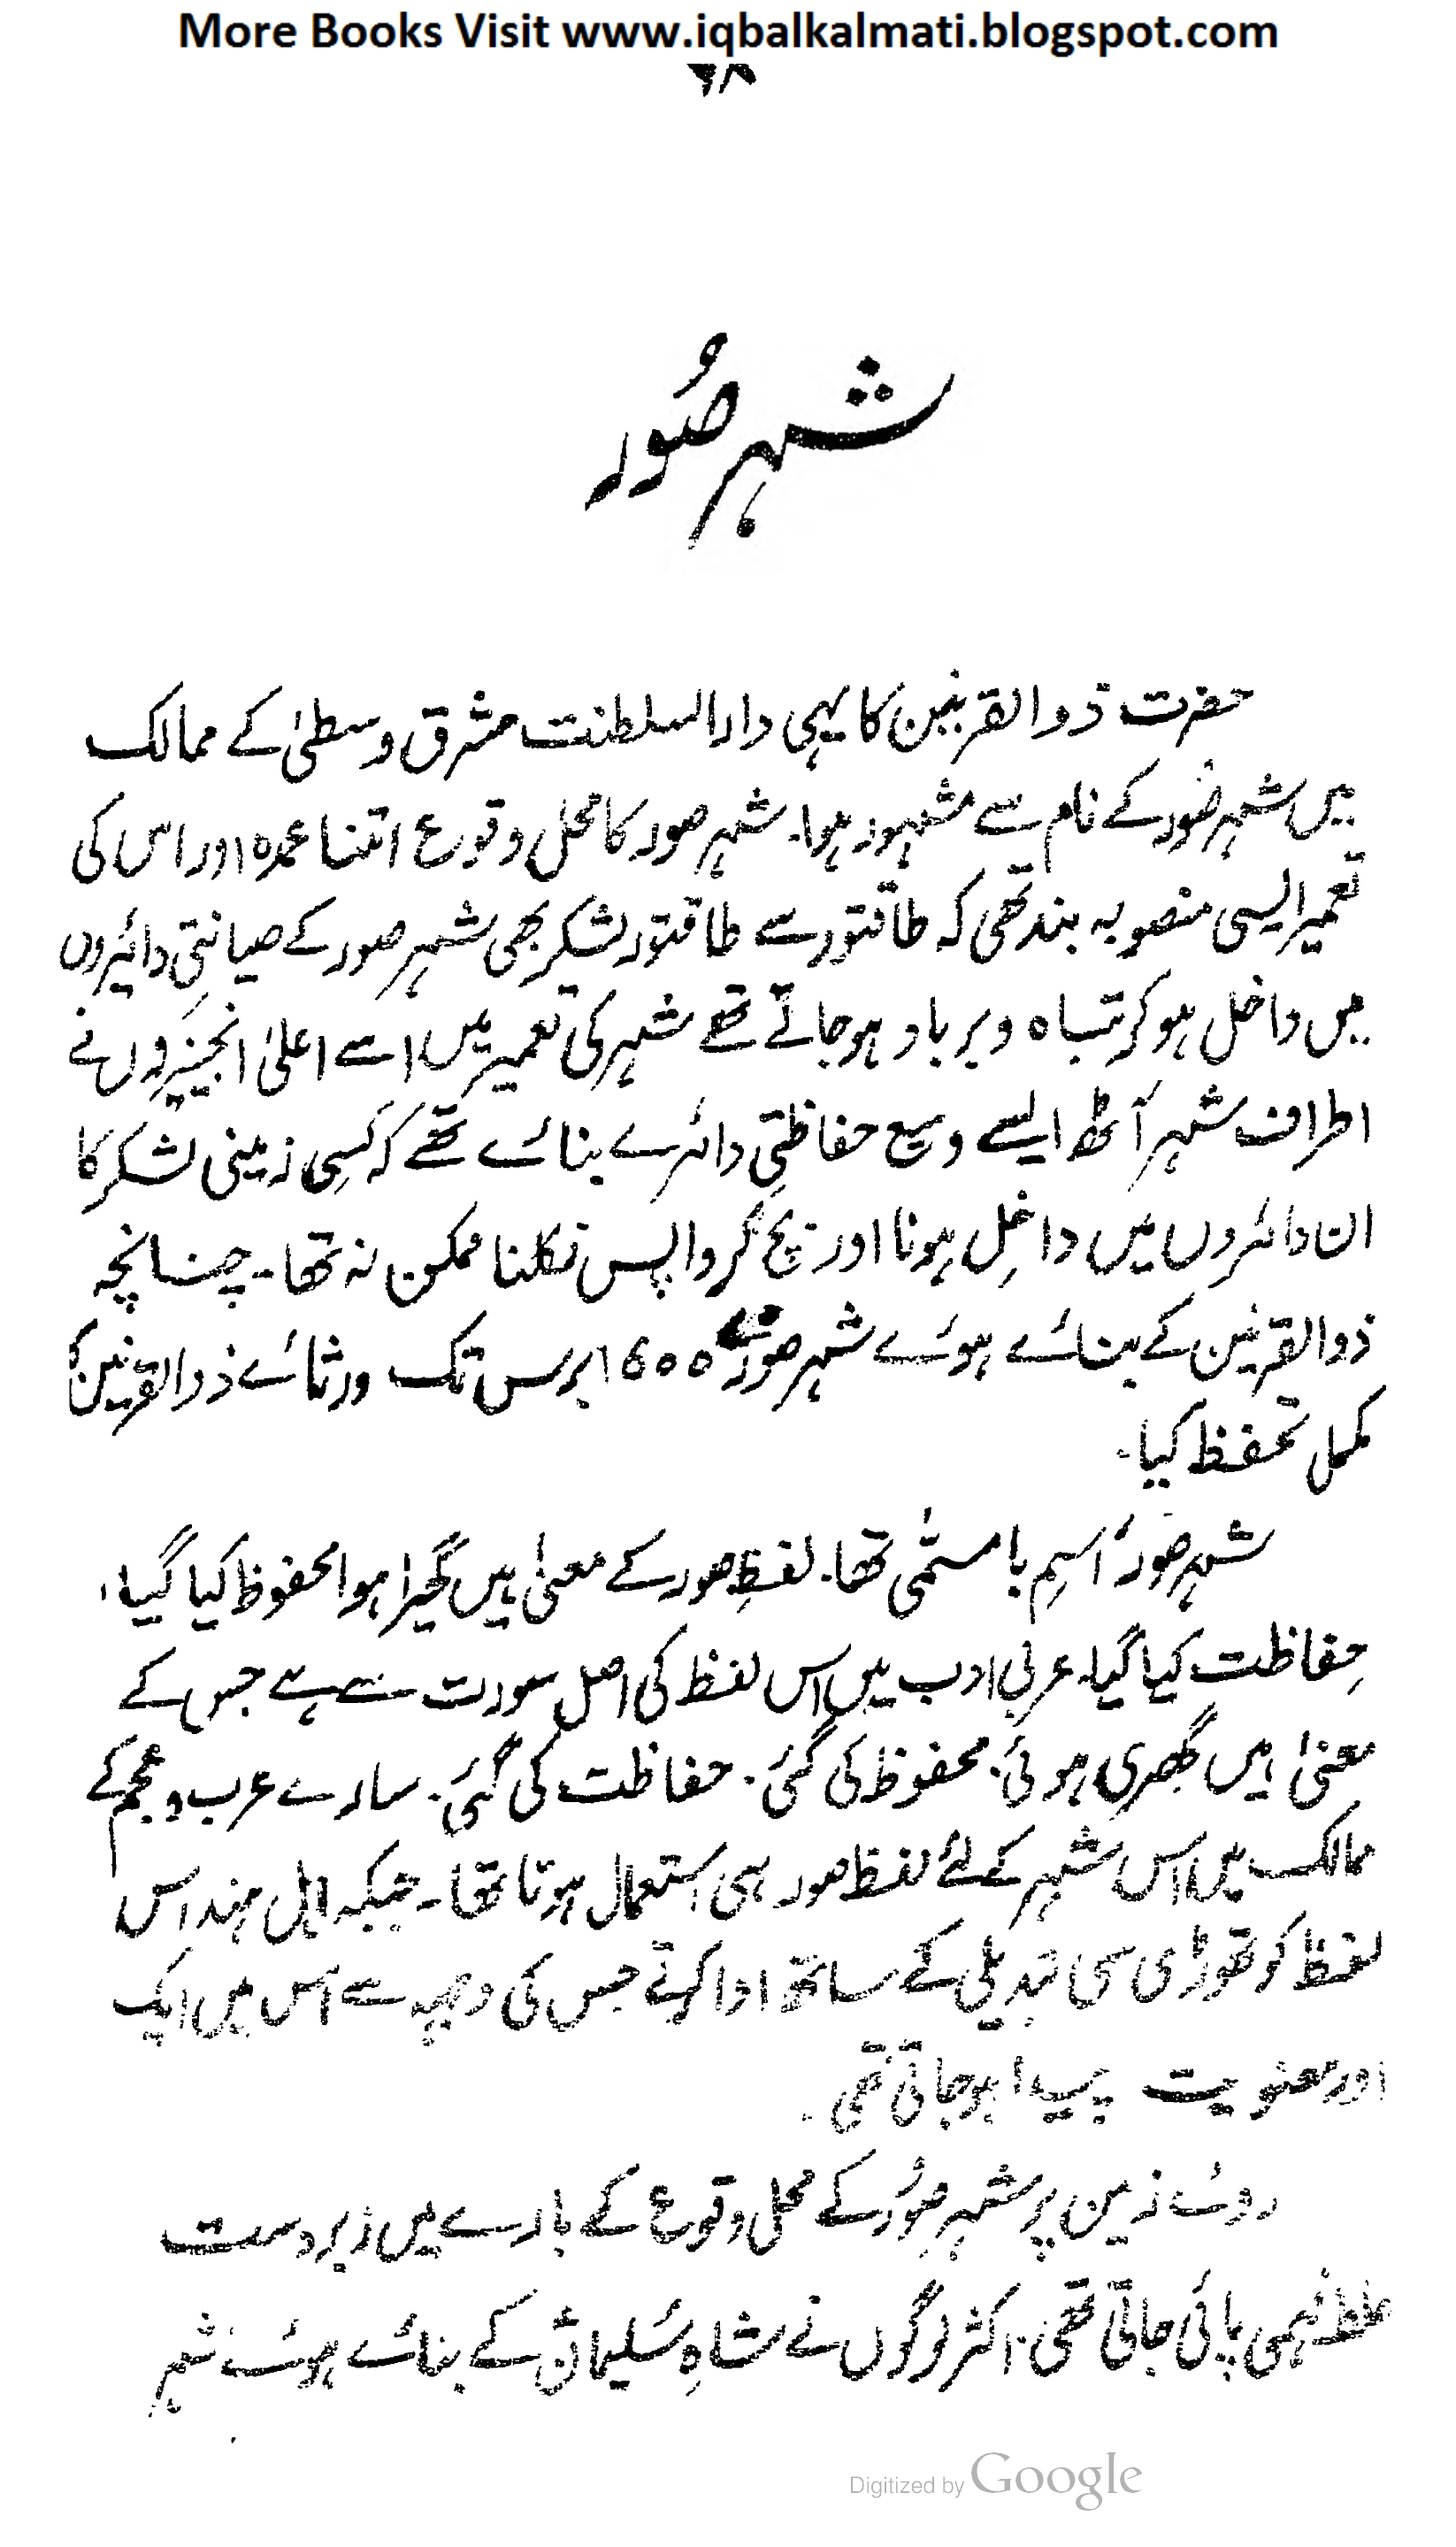 More Books Visit www.iqbalkalmati.blogspot.com
شہر صُور
حضرت ذوالقرنین کا یہی دارالسلطنت مشرق وسطیٰ کے ممالک
میں شہر صُور کے نام سے مشہور ہوا۔ شہر صور کا محل وقوع اتنا عمدہ اور اس کی
تعمیر ایسی منصوبہ بند تھی کہ طاقتور سے طاقتور لشکر بھی شہر صور کے صیانتی دائیروں
میں داخل ہو کر تباہ و برباد ہو جاتے تھے شہر کی تعمیر میں اسے اعلیٰ انجینیروں نے
اطراف شہر آٹھ ایسے وسیع حفاظتی دائرے بنائے تھے کہ کسِی زمینی لشکر کا
ان دائروں میں داخِل ہونا اور بچ کر واپس نکلنا ممکن نہ تھا۔ چنانچہ
ذوالقرنین کے بنائے ہوئے شہر صور نے 1600 برس تک ورثائے ذوالقرنین کا
مکمل تحفظ کیا۔
شہر صور اُسمِ بامسمّٰی تھا۔ لفظِ صور کے معنیٰ ہیں گھیرا ہوا محفوظ کیا گیا،
حِفاظت کیا گیا۔ عربی ادب میں اس لفظ کی اصل سورت سے ہے جس کے
معنیٰ ہیں گھری ہوئی، محفوظ کی گئی۔ حفاظت کی گئی۔ سارے عرب و عجم کے
ممالک میں اس شہر کے لئے لفظ صور ہی استعمال ہوتا تھا۔ جبکہ اہل ہند اس
لفظ کو تھوڑی سی تبدیلی کے ساتھ ادا کرتے جس کی وجہہ سے اس میں ایک
اور معنویت پیدا ہو جاتی تھی۔
روئے زمین پر شہر صُور کے محل وقوع کے بارے میں زبردست
غلط فہمی پائی جاتی تھی۔ اکثر لوگوں نے شاہِ سُلیمانؑ کے بنائے ہوئے شہر
Digitized by Google